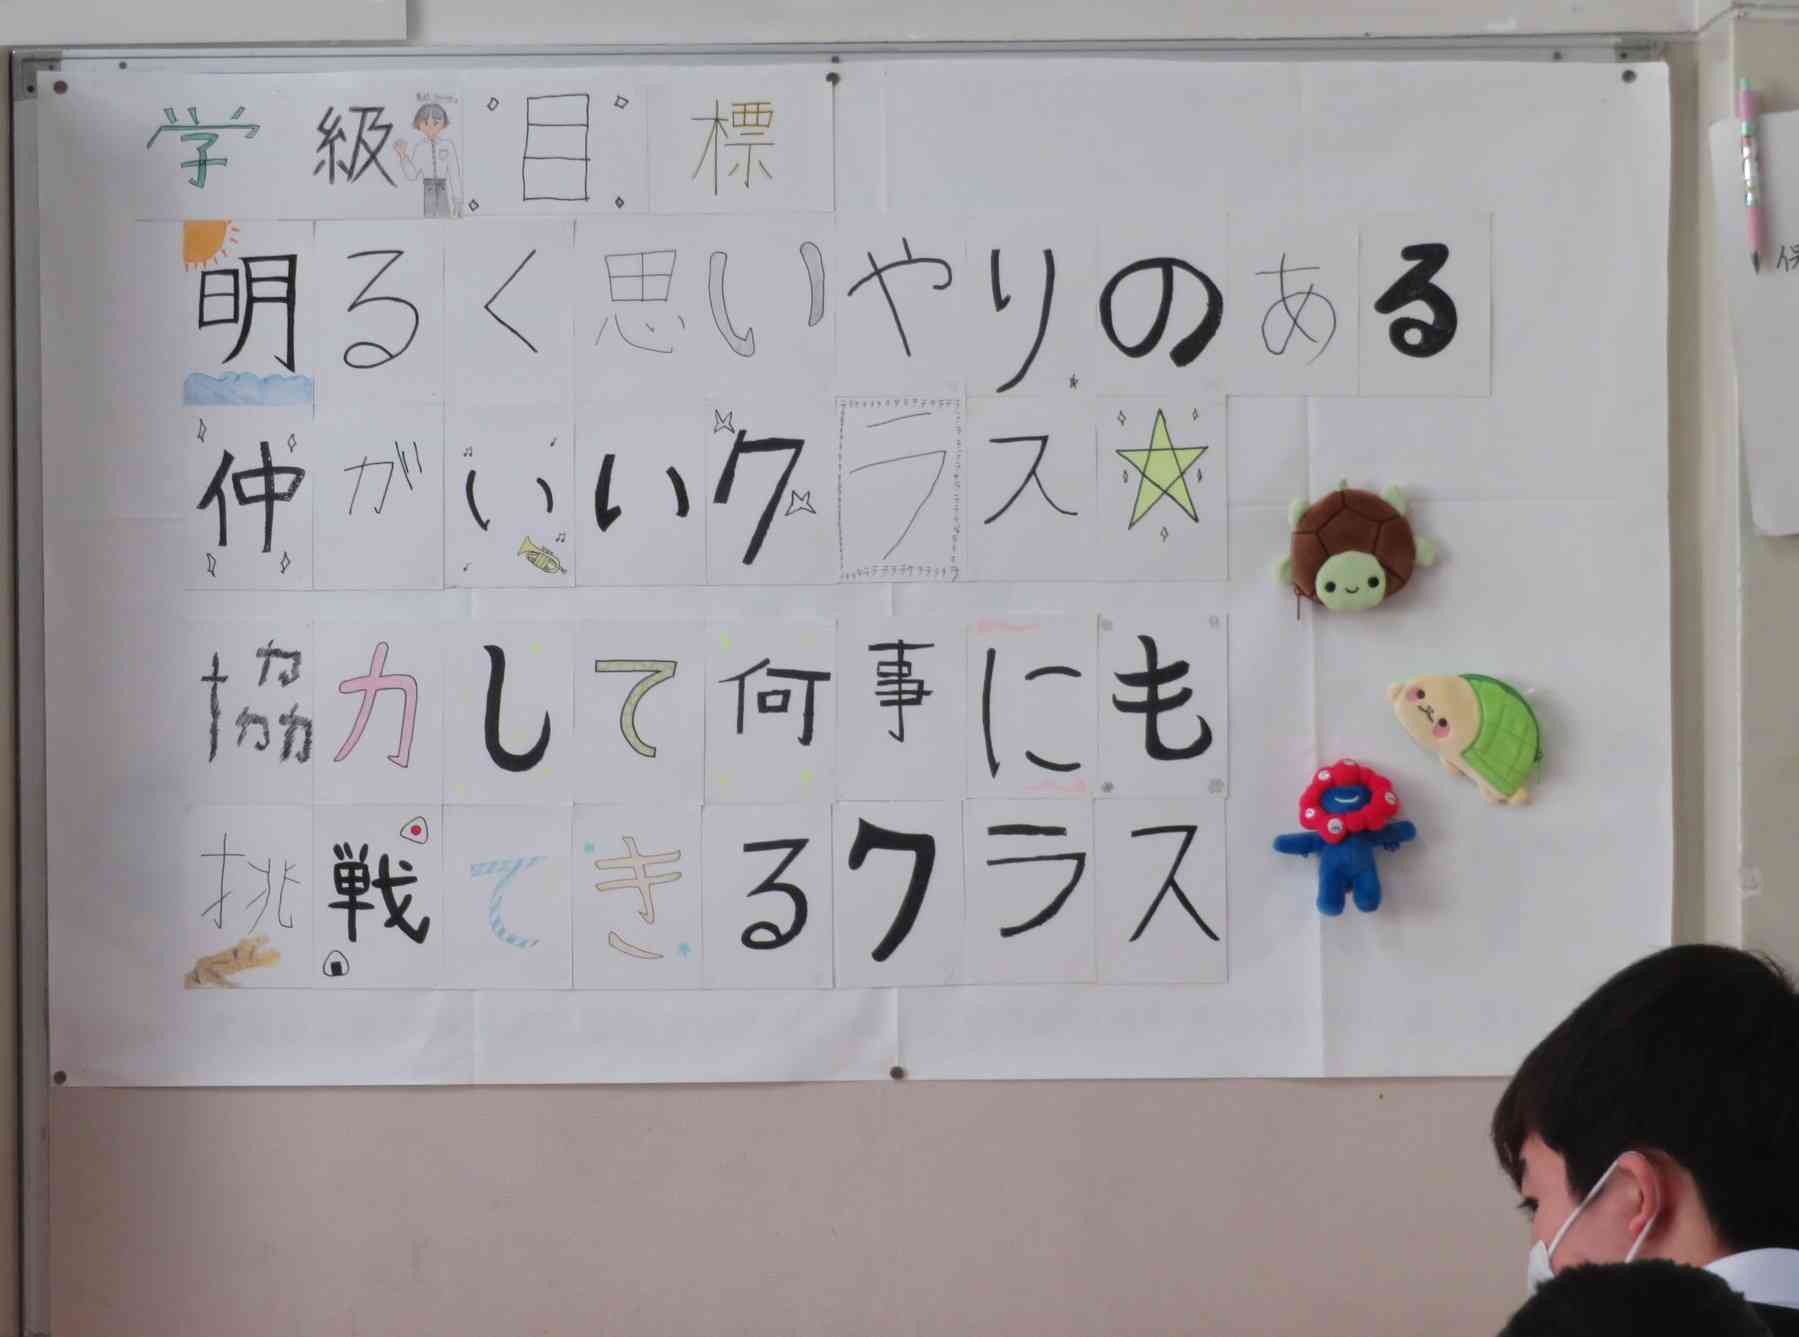 学級目標
明るく思いやりのある
仲がいいクラス☆
協力して何事にも
挑戦できるクラス